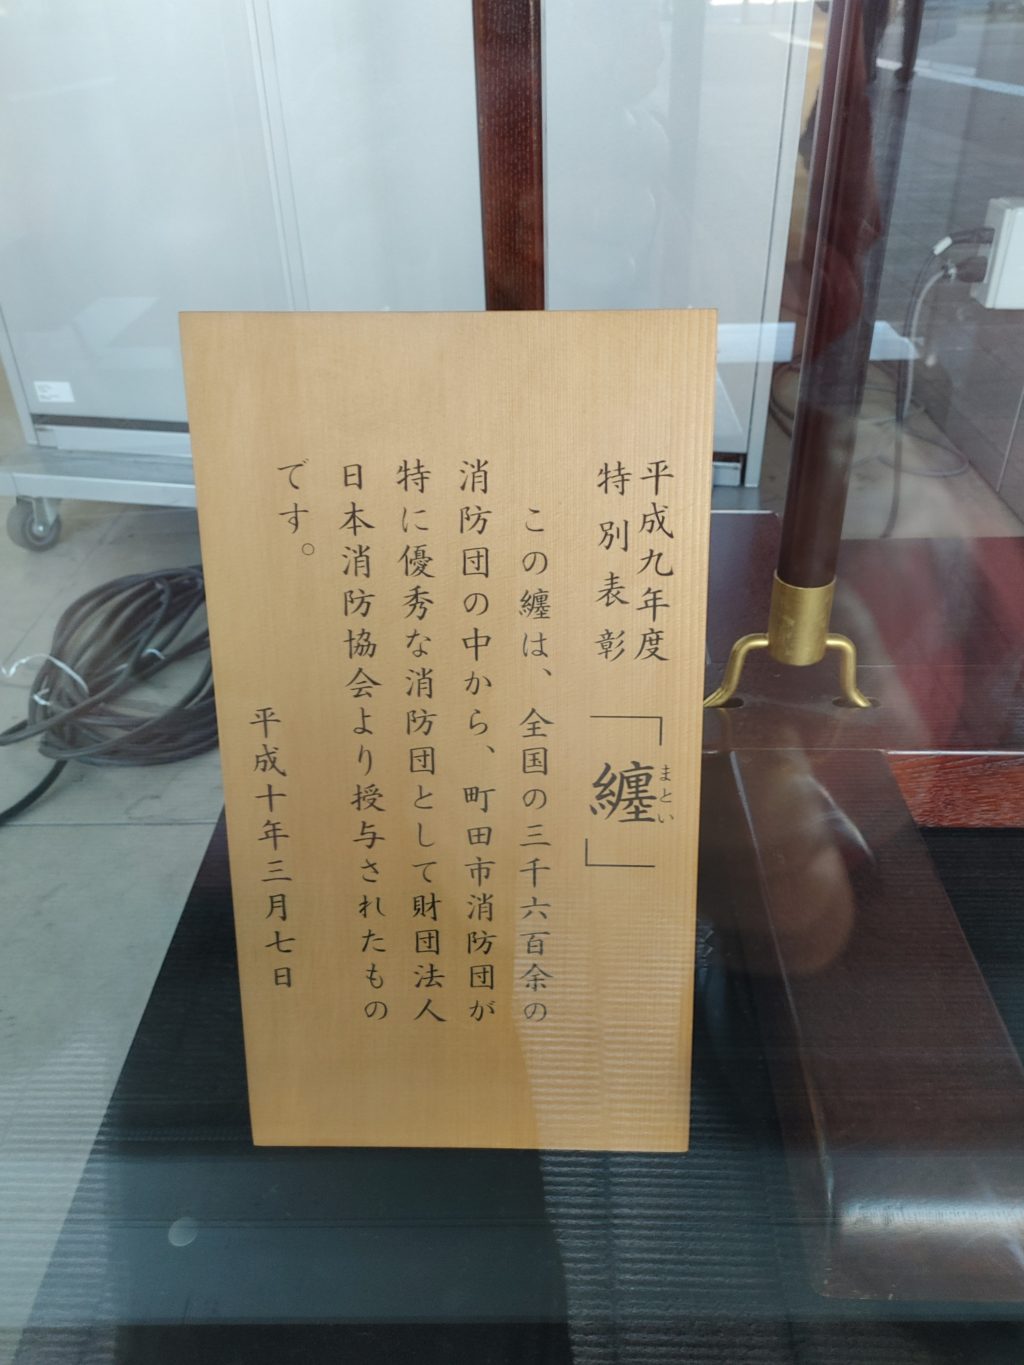 平成九年度
特別表彰
「纏」
まとい
この纏は、全国の三千六百余の
消防団の中から、町田市消防団が
特に優秀な消防団として財団法人
日本消防協会より授与されたもの
です。
平成十年三月七日